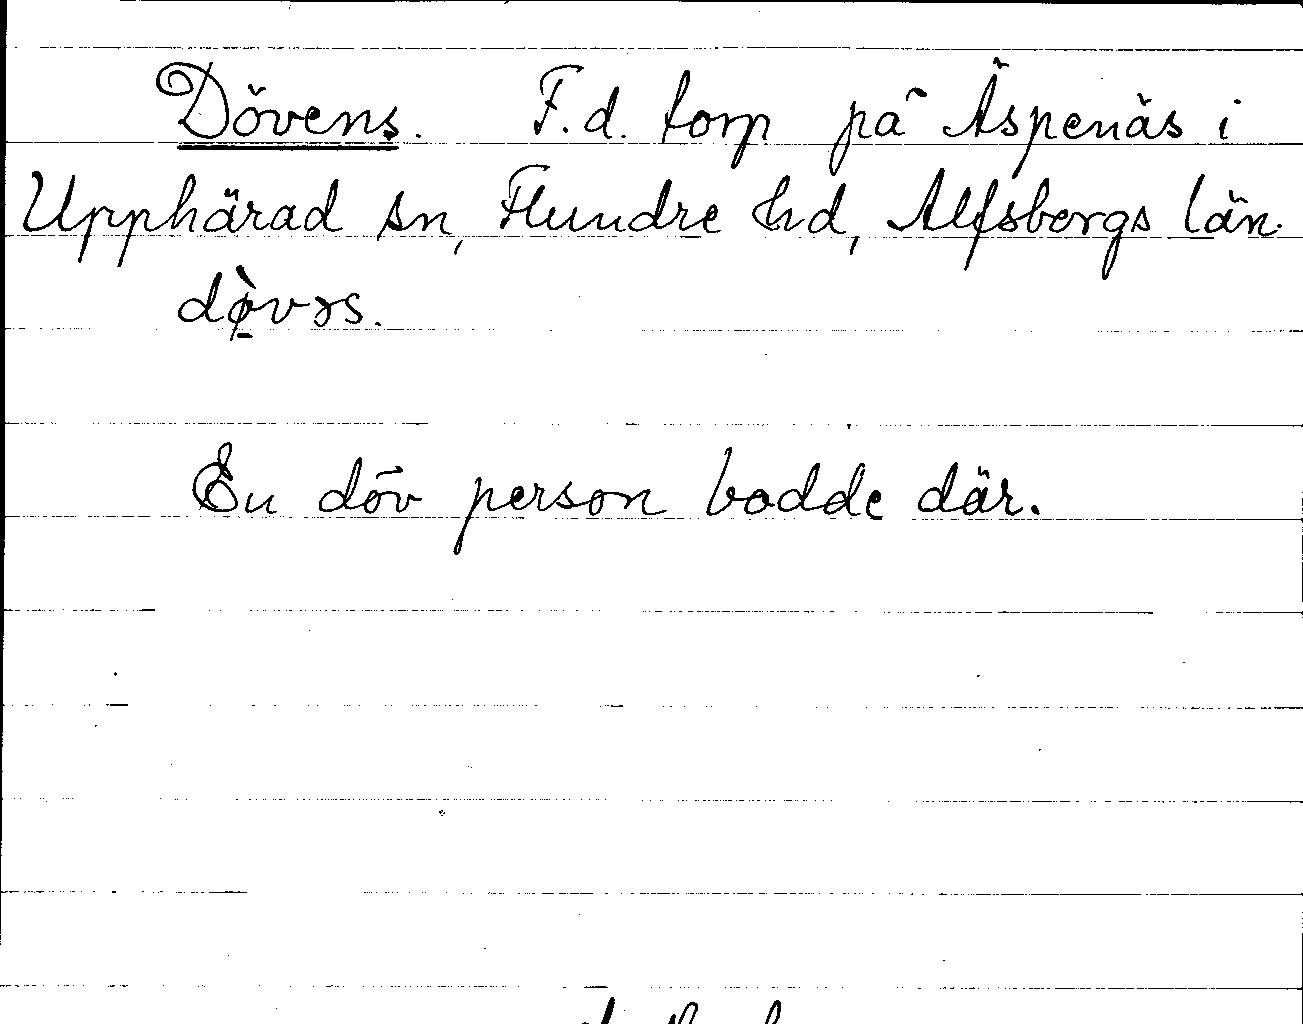 Dövens. F.d. torp på Äspenäs i
Upphärad sn, Flundre hd, Älfsborgs län.
dø̀vɤs.
En döv person bodde där.